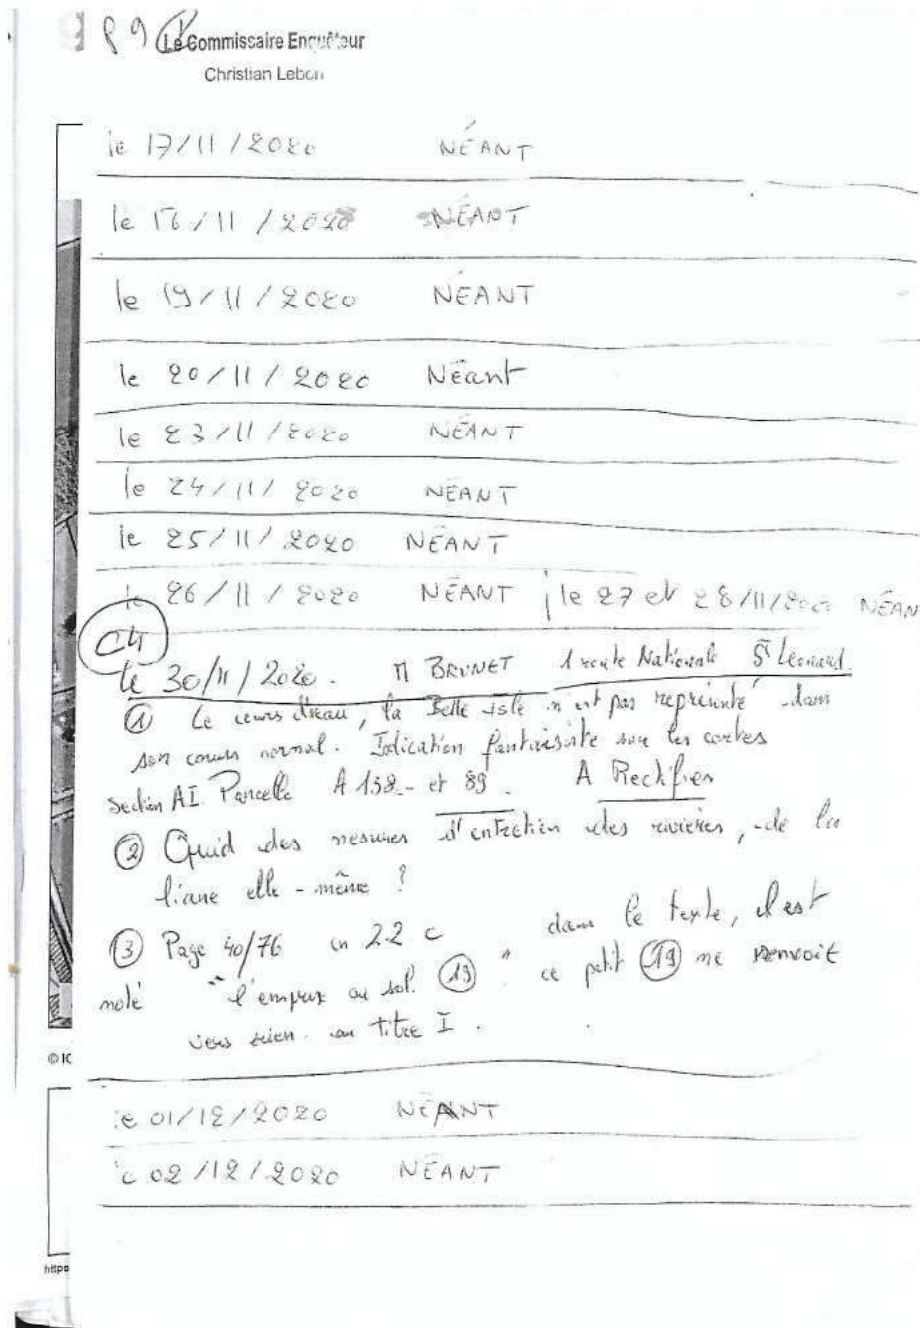 P 9
Le Commissaire Enquêteur
Christian Lebon
le 17/11/2020 NÉANT
le 16/11/2020 NÉANT
le 19/11/2020 NÉANT
le 20/11/2020 Néant
le 23/11/2020 NÉANT
le 24/11/2020 NÉANT
le 25/11/2020 NÉANT
le 26/11/2020 NÉANT le 27 et 28/11/2020 NÉAN
le 30/11/2020. M BRUNET 1 route Nationale St Leonard.
① Le cours d'eau, la Belle isle n'est pas représenté dans
son cours normal. Indication fantaisiste sur les cartes
Section AI Parcelle A 158 - et 89. A Rectifier
② Quid des mesures d'entretien des rivières, de la
liane elle-même ?
③ Page 40/76 en 2.2 c dans le texte, il est
noté "l'emprise au sol. ⑲" ce petit ⑲ ne renvoit
vers rien au titre I.
© IG
le 01/12/2020 NÉANT
le 02/12/2020 NÉANT
https